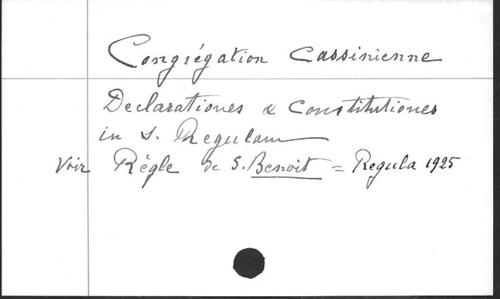 Congrégation Cassinienne
Declarationes & Constitutiones
in S. Regulam
Voir Règle de S. Benoit = Regula 1925